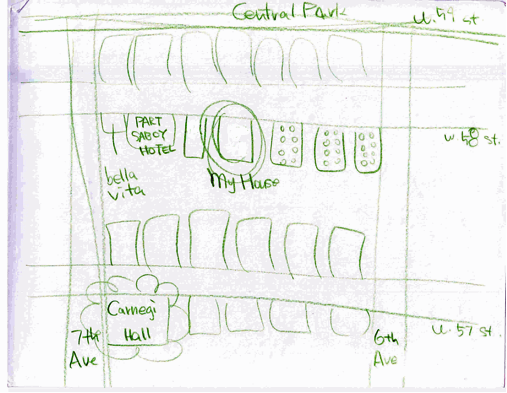 Central Park
W. 59 st.
PART
SABOY
HOTEL
W. 58 st.
bella
vita
My House
Carnegi
Hall
7th
Ave
6th
Ave
W. 57 st.